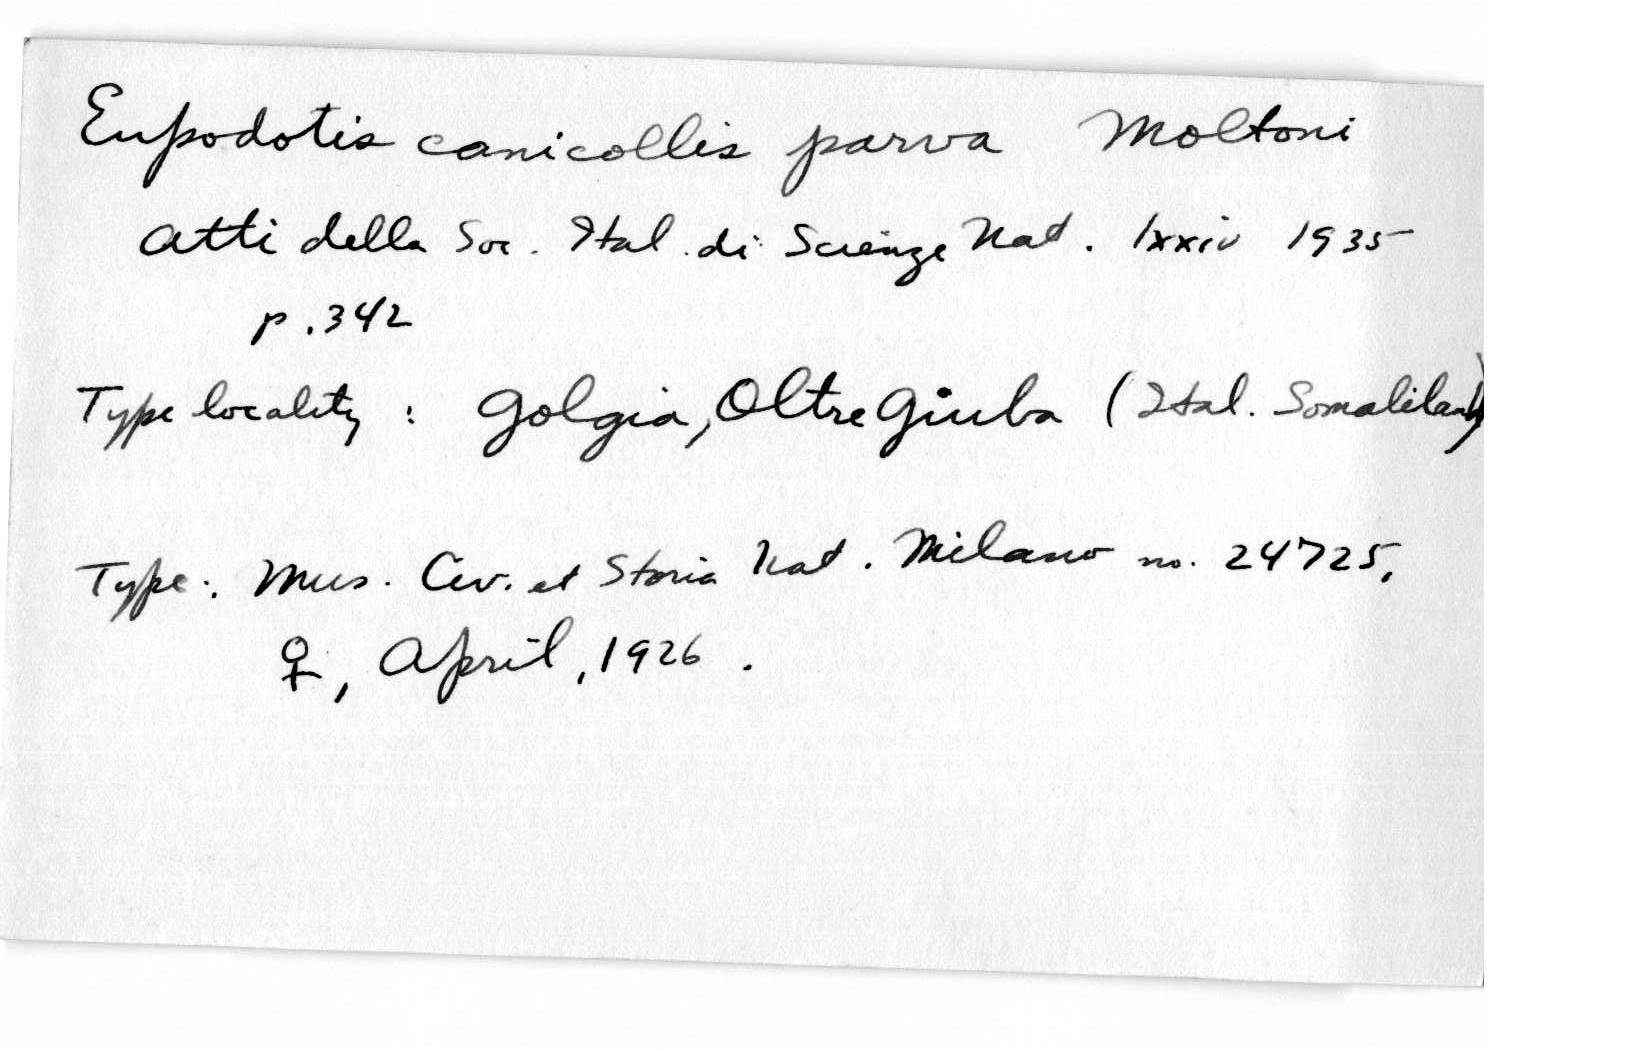 Eupodotis canicollis parva Moltoni
Atti della Soc. Ital. di Scienze Nat. lxxiv 1935
p. 342
Type locality: Golgia, Oltre Giuba (Ital. Somaliland)
Type: Mus. Civ. et Storia Nat. Milano no. 24725,
♀, April, 1926.